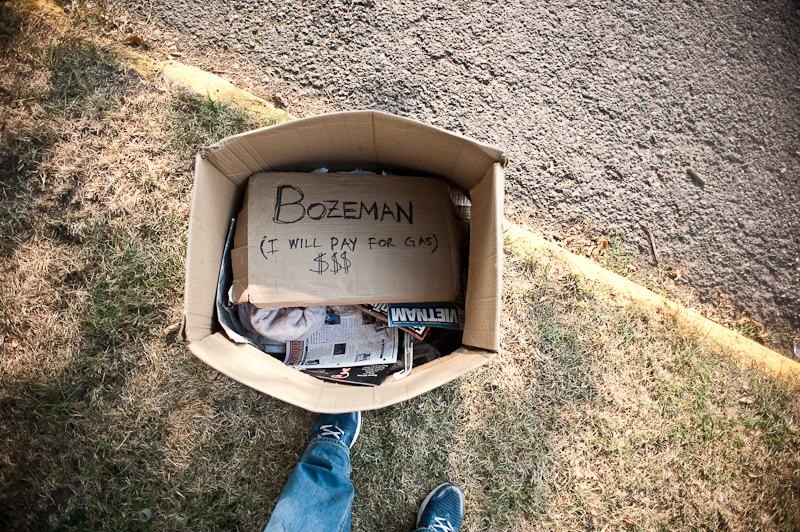 BOZEMAN
(I WILL PAY FOR GAS)
$$$
VIETNAM